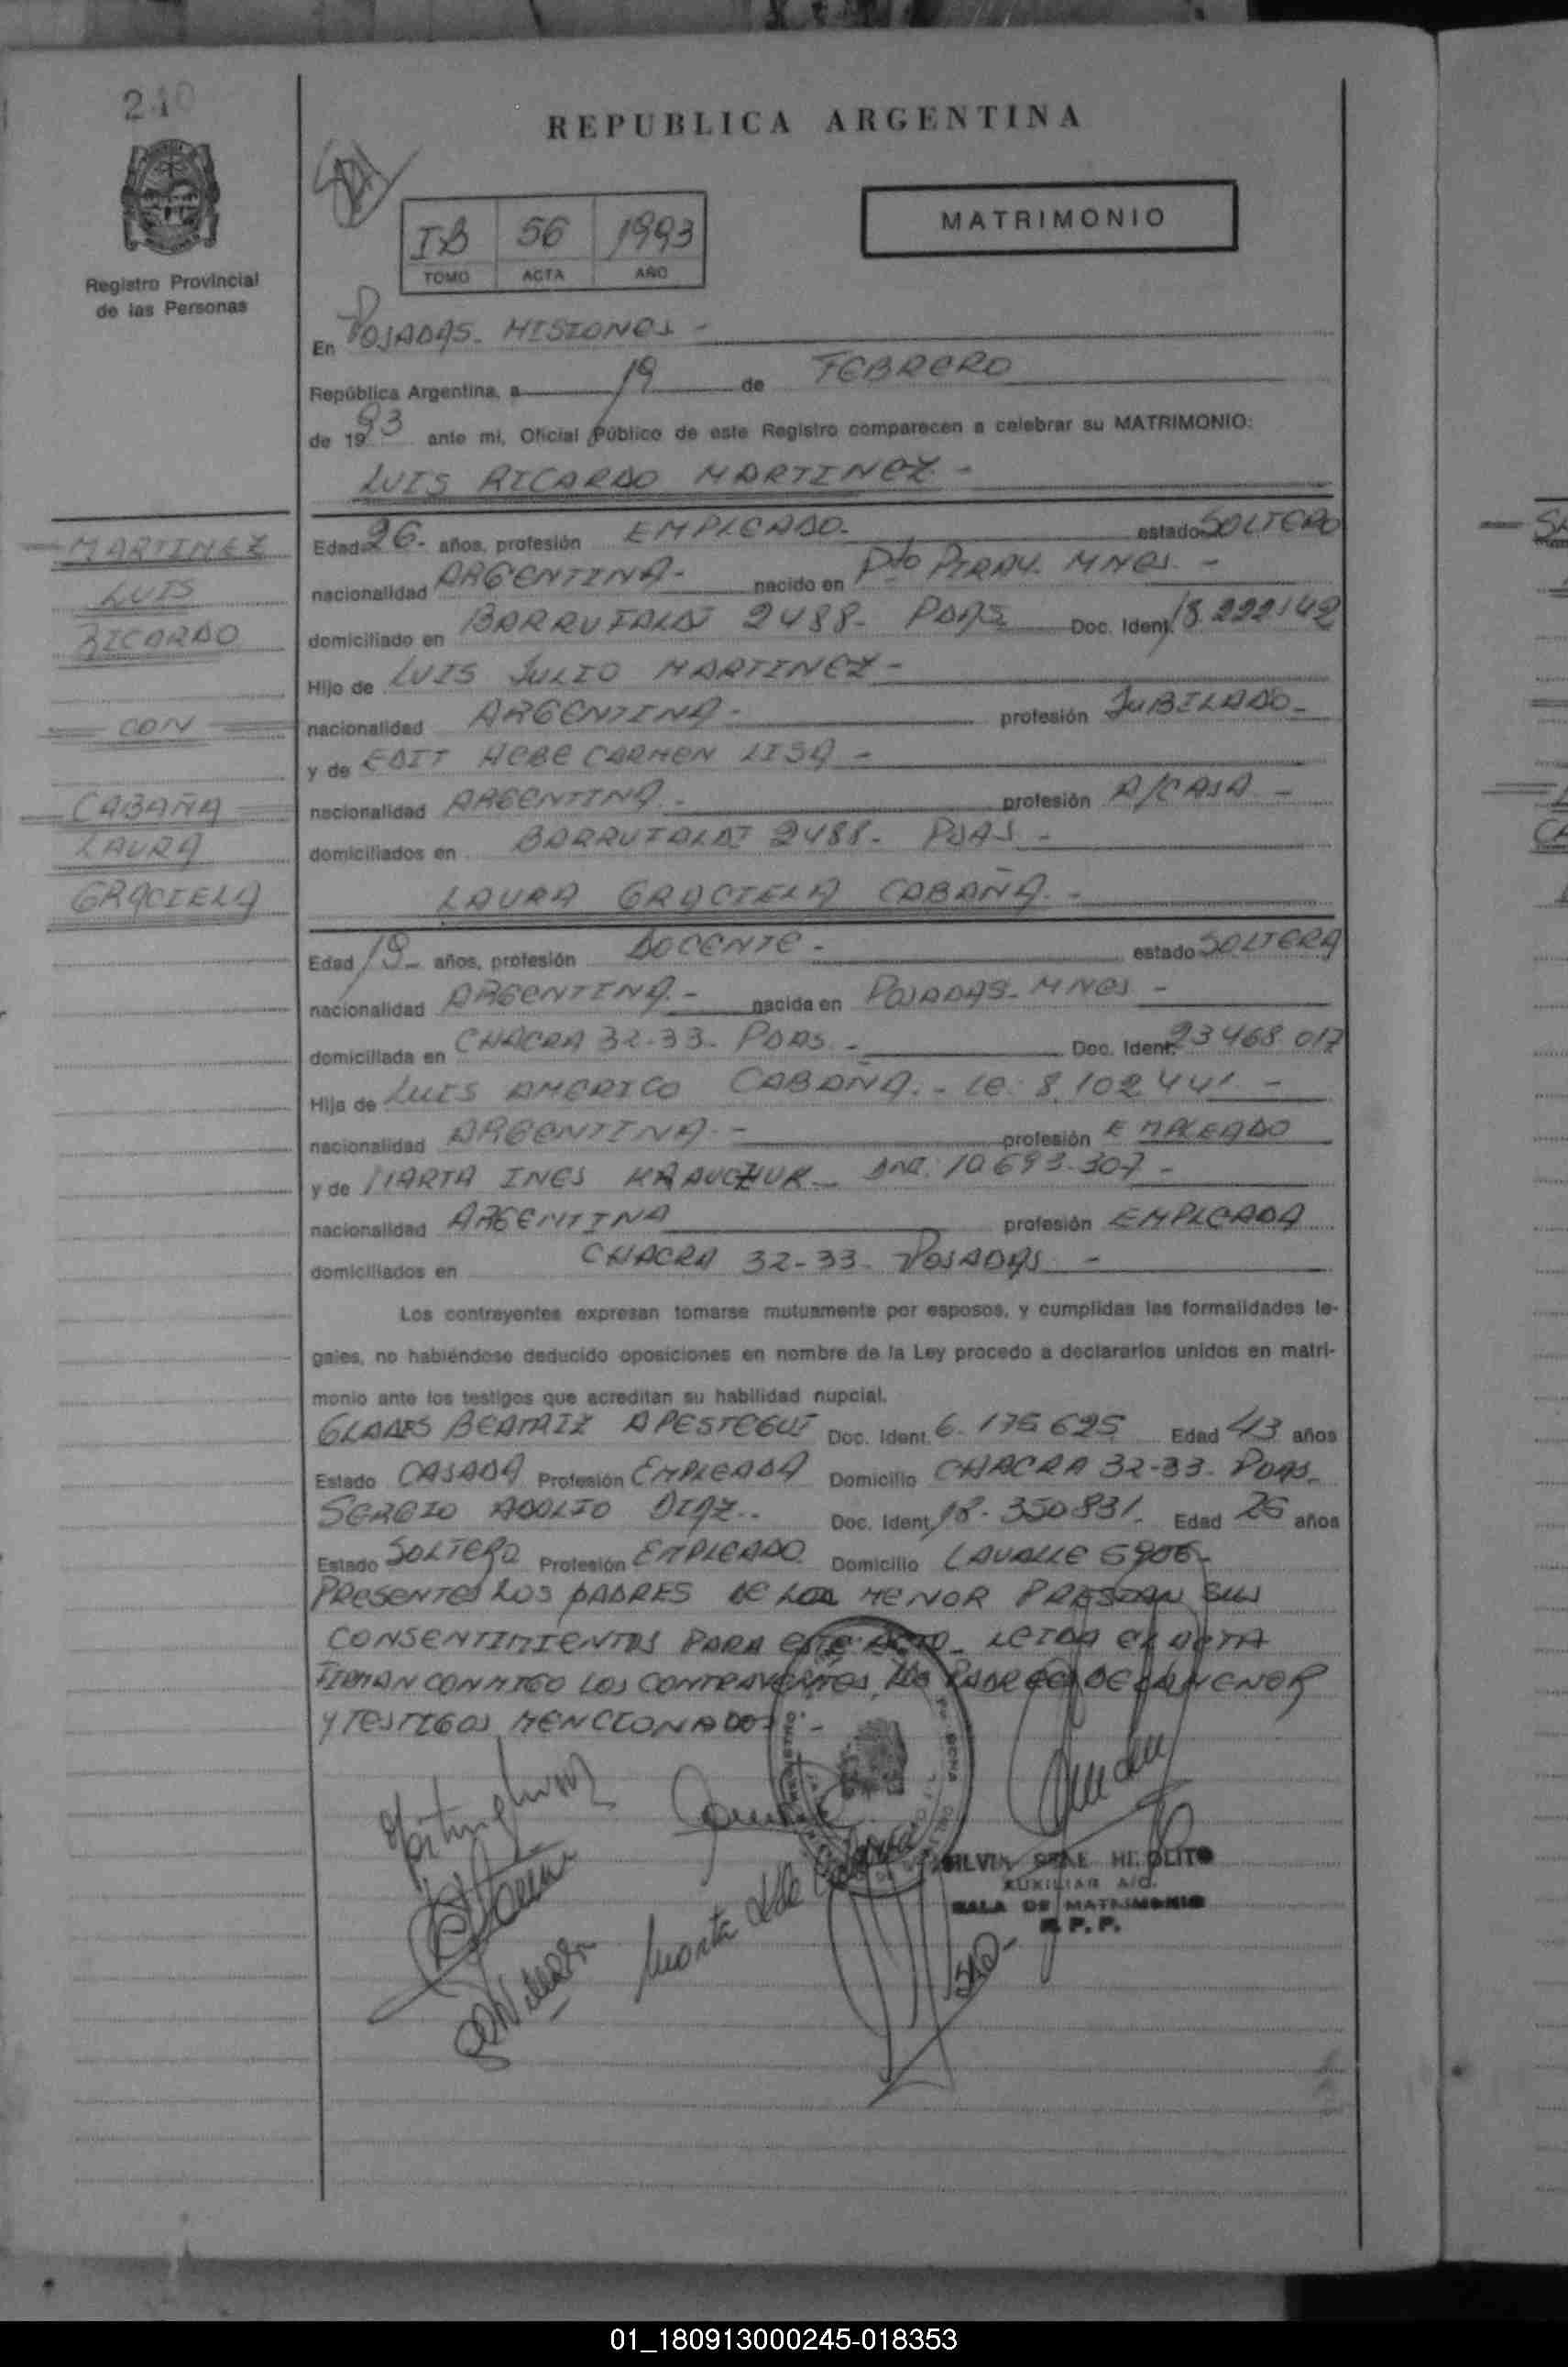 240
REPUBLICA ARGENTINA
MATRIMONIO
IB 56 1993
TOMO ACTA AÑO
Registro Provincial
de las Personas
En POSADAS - MISIONES -
República Argentina, a 19 de FEBRERO
de 1993 ante mi, Oficial Público de este Registro comparecen a celebrar su MATRIMONIO:
LUIS RICARDO MARTINEZ -
MARTINEZ
LUIS
RICARDO
CON
CABAÑA
LAURA
GRACIELA
Edad 26- años, profesión EMPLEADO- estado SOLTERO
nacionalidad ARGENTINA- nacido en Pto PIRAY. MNES. -
domiciliado en 2488- PDAS Doc. Ident. 18.222142
Hijo de LUIS JULIO MARTINEZ -
nacionalidad ARGENTINA- profesión JUBILADO-
y de EDIT HEBE CARMEN LISA -
nacionalidad ARGENTINA- profesión A/CASA -
domiciliados en 2488- PDAS -
LAURA GRACIELA CABAÑA. -
Edad 19- años, profesión DOCENTE - estado SOLTERA
nacionalidad ARGENTINA. - nacida en POSADAS- MNES -
domiciliada en CHACRA 32-33- PDAS - Doc. Ident. 23468.017
Hija de LUIS AMERICO CABAÑA. - LE: 8.102.441. -
nacionalidad ARGENTINA. - profesión EMPLEADO
y de MARTA INES KRAUCZUK- DNI: 10.693.307 -
nacionalidad ARGENTINA profesión EMPLEADA
domiciliados en CHACRA 32-33- POSADAS -
Los contrayentes expresan tomarse mutuamente por esposos, y cumplidas las formalidades le-
gales, no habiéndose deducido oposiciones en nombre de la Ley procedo a declararlos unidos en matri-
monio ante los testigos que acreditan su habilidad nupcial.
GLADIS BEATRIZ APESTEGUI Doc. Ident. 6.175625 Edad 43 años
Estado CASADA Profesión EMPLEADA Domicilio CHACRA 32-33- PDAS-
SERGIO ADOLFO DIAZ.. Doc. Ident. 18.350831. Edad 26 años
Estado SOLTERO Profesión EMPLEADO Domicilio LAVALLE 5906-
PRESENTES LOS PADRES DE LA MENOR PRESTAN SUS
CONSENTIMIENTOS PARA ESTE ACTO- LEIDA EL ACTA
FIRMAN CONMIGO LOS CONTRAYENTES, LOS PADRES DE LA MENOR
Y TESTIGOS MENCIONADOS -
AUXILIAR A/C.
SALA DE MATRIMONIO
R. P. P.
01_180913000245-018353